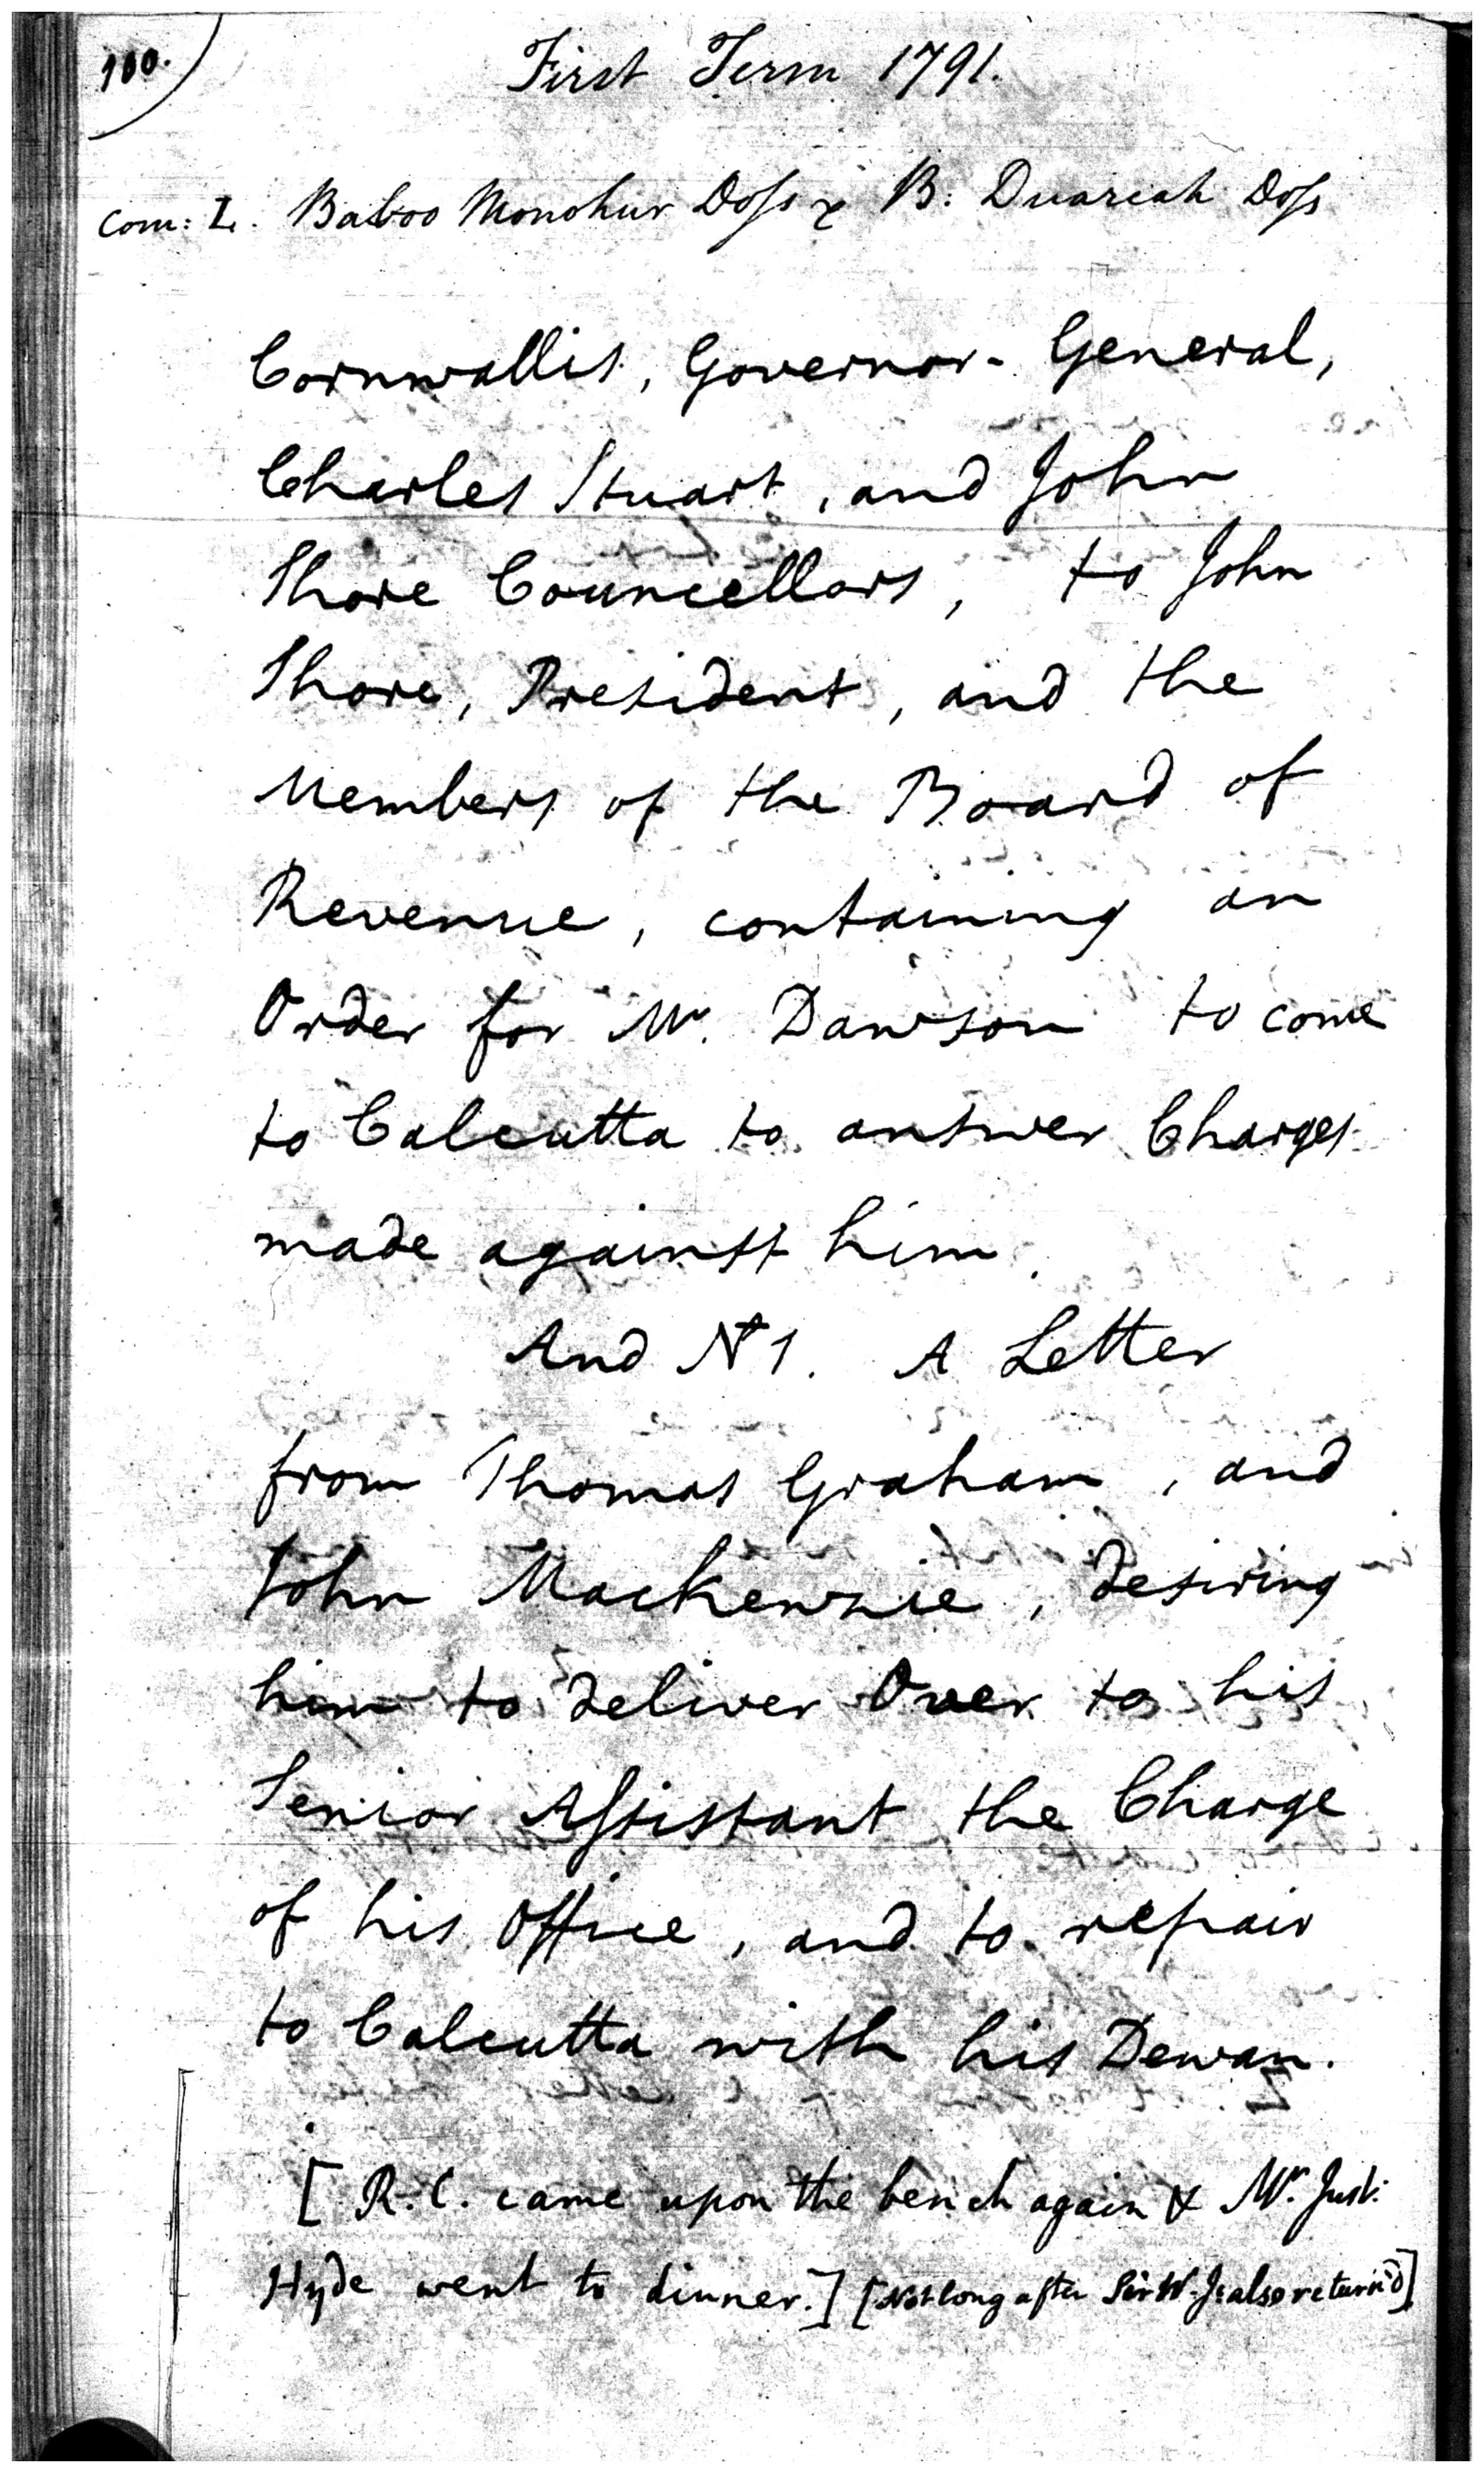 100.
First Term 1791.
Com: L. Baboo Monohur Doſs & B: Duarcah Doſs
Cornwallis, Governor-General,
Charles Stuart, and John
Shore Councellors, to John
Shore, President, and the
Members of the Board of
Revenue, containing an
Order for Mr. Dawson to come
to Calcutta to answer Charges
made against him.
And No 1. A Letter
from Thomas Graham, and
John Mackenzie, desiring
him to deliver Over to his
Senior Aſsistant the Charge
of his Office, and to repair
to Calcutta with his Dewan.
[R.C. came upon the bench again & Mr. Just:
Hyde went to dinner.] [Not long after Sir W. J: also return'd]